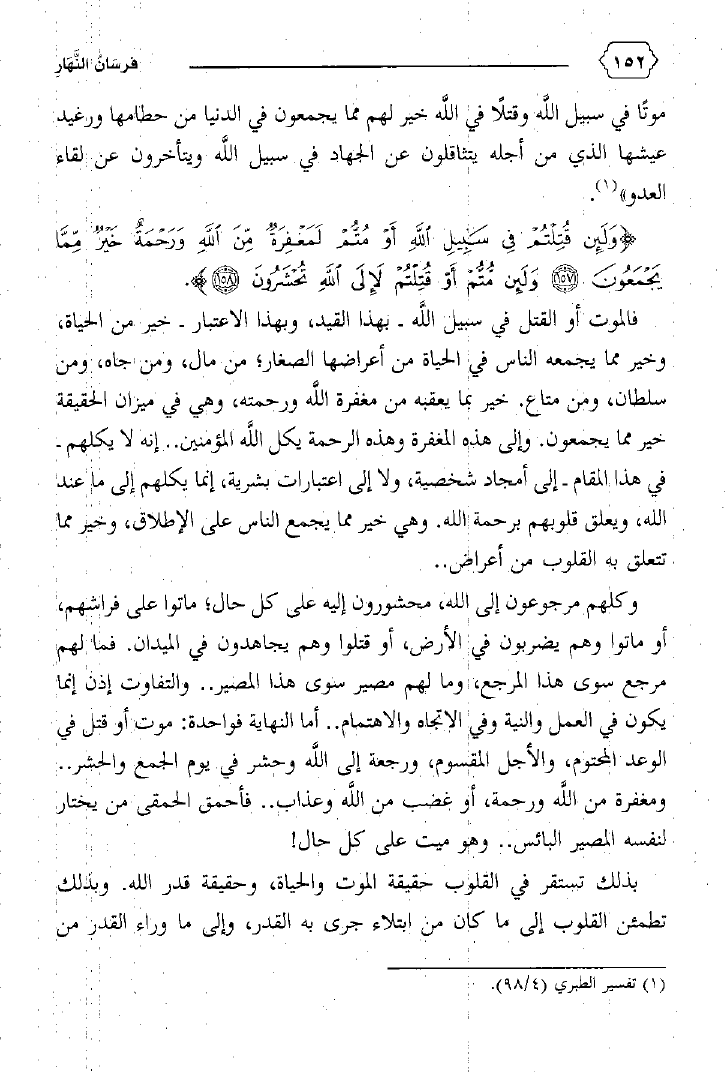 ١٥٢
فرسان النَّهار
موتًا في سبيل اللَّه وقتلًا في اللَّه خير لهم مما يجمعون في الدنيا من حطامها ورغيد
عيشها الذي من أجله يتثاقلون عن الجهاد في سبيل اللَّه ويتأخرون عن لقاء
العدو»(١).
﴿وَلَئِن قُتِلْتُمْ فِي سَبِيلِ ٱللَّهِ أَوْ مُتُّمْ لَمَغْفِرَةٌ مِّنَ ٱللَّهِ وَرَحْمَةٌ خَيْرٌ مِّمَّا
يَجْمَعُونَ ﴿١٥٧﴾ وَلَئِن مُّتُّمْ أَوْ قُتِلْتُمْ لَإِلَى ٱللَّهِ تُحْشَرُونَ ﴿١٥٨﴾﴾.
فالموت أو القتل في سبيل اللَّه ـ بهذا القيد، وبهذا الاعتبار ـ خير من الحياة،
وخير مما يجمعه الناس في الحياة من أعراضها الصغار؛ من مال، ومن جاه، ومن
سلطان، ومن متاع. خير بما يعقبه من مغفرة اللَّه ورحمته، وهي في ميزان الحقيقة
خير مما يجمعون. وإلى هذه المغفرة وهذه الرحمة يكل اللَّه المؤمنين.. إنه لا يكلهم ـ
في هذا المقام ـ إلى أمجاد شخصية، ولا إلى اعتبارات بشرية، إنما يكلهم إلى ما عند
الله، ويعلق قلوبهم برحمة الله. وهي خير مما يجمع الناس على الإطلاق، وخير مما
تتعلق به القلوب من أعراض..
وكلهم مرجوعون إلى الله، محشورون إليه على كل حال؛ ماتوا على فراشهم،
أو ماتوا وهم يضربون في الأرض، أو قتلوا وهم يجاهدون في الميدان. فما لهم
مرجع سوى هذا المرجع، وما لهم مصير سوى هذا المصير.. والتفاوت إذن إنما
يكون في العمل والنية وفي الإتجاه والاهتمام.. أما النهاية فواحدة: موت أو قتل في
الوعد المحتوم، والأجل المقسوم، ورجعة إلى اللَّه وحشر في يوم الجمع والحشر..
ومغفرة من اللَّه ورحمة، أو غضب من اللَّه وعذاب.. فأحمق الحمقى من يختار
لنفسه المصير البائس.. وهو ميت على كل حال!
بذلك تستقر في القلوب حقيقة الموت والحياة، وحقيقة قدر الله. وبذلك
تطمئن القلوب إلى ما كان من ابتلاء جرى به القدر، وإلى ما وراء القدر من
(١) تفسير الطبري (٩٨/٤).